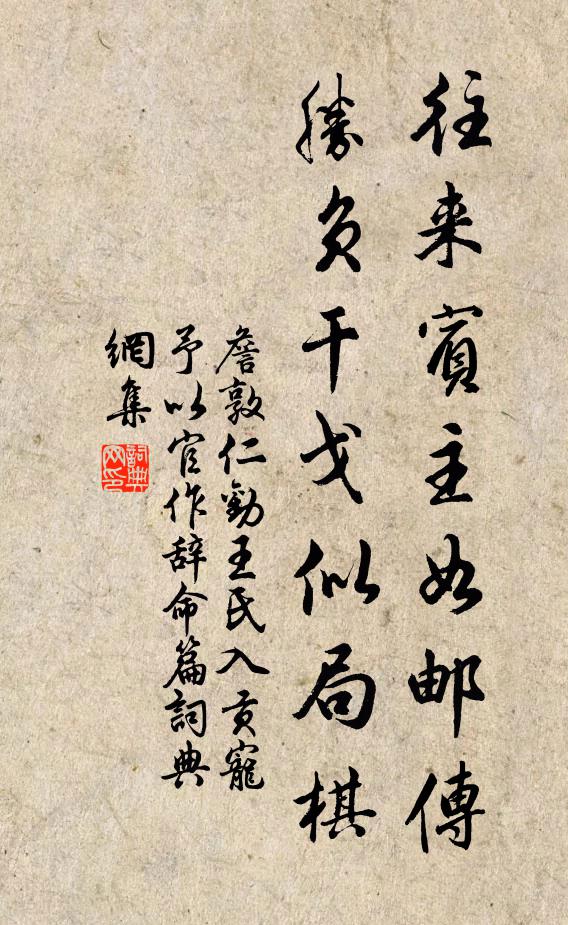 往来賓主如邮傳
勝負干戈似局棋
詹敦仁勸王氏入貢寵
予以官作辞命篇詞典
網集
詞典網印